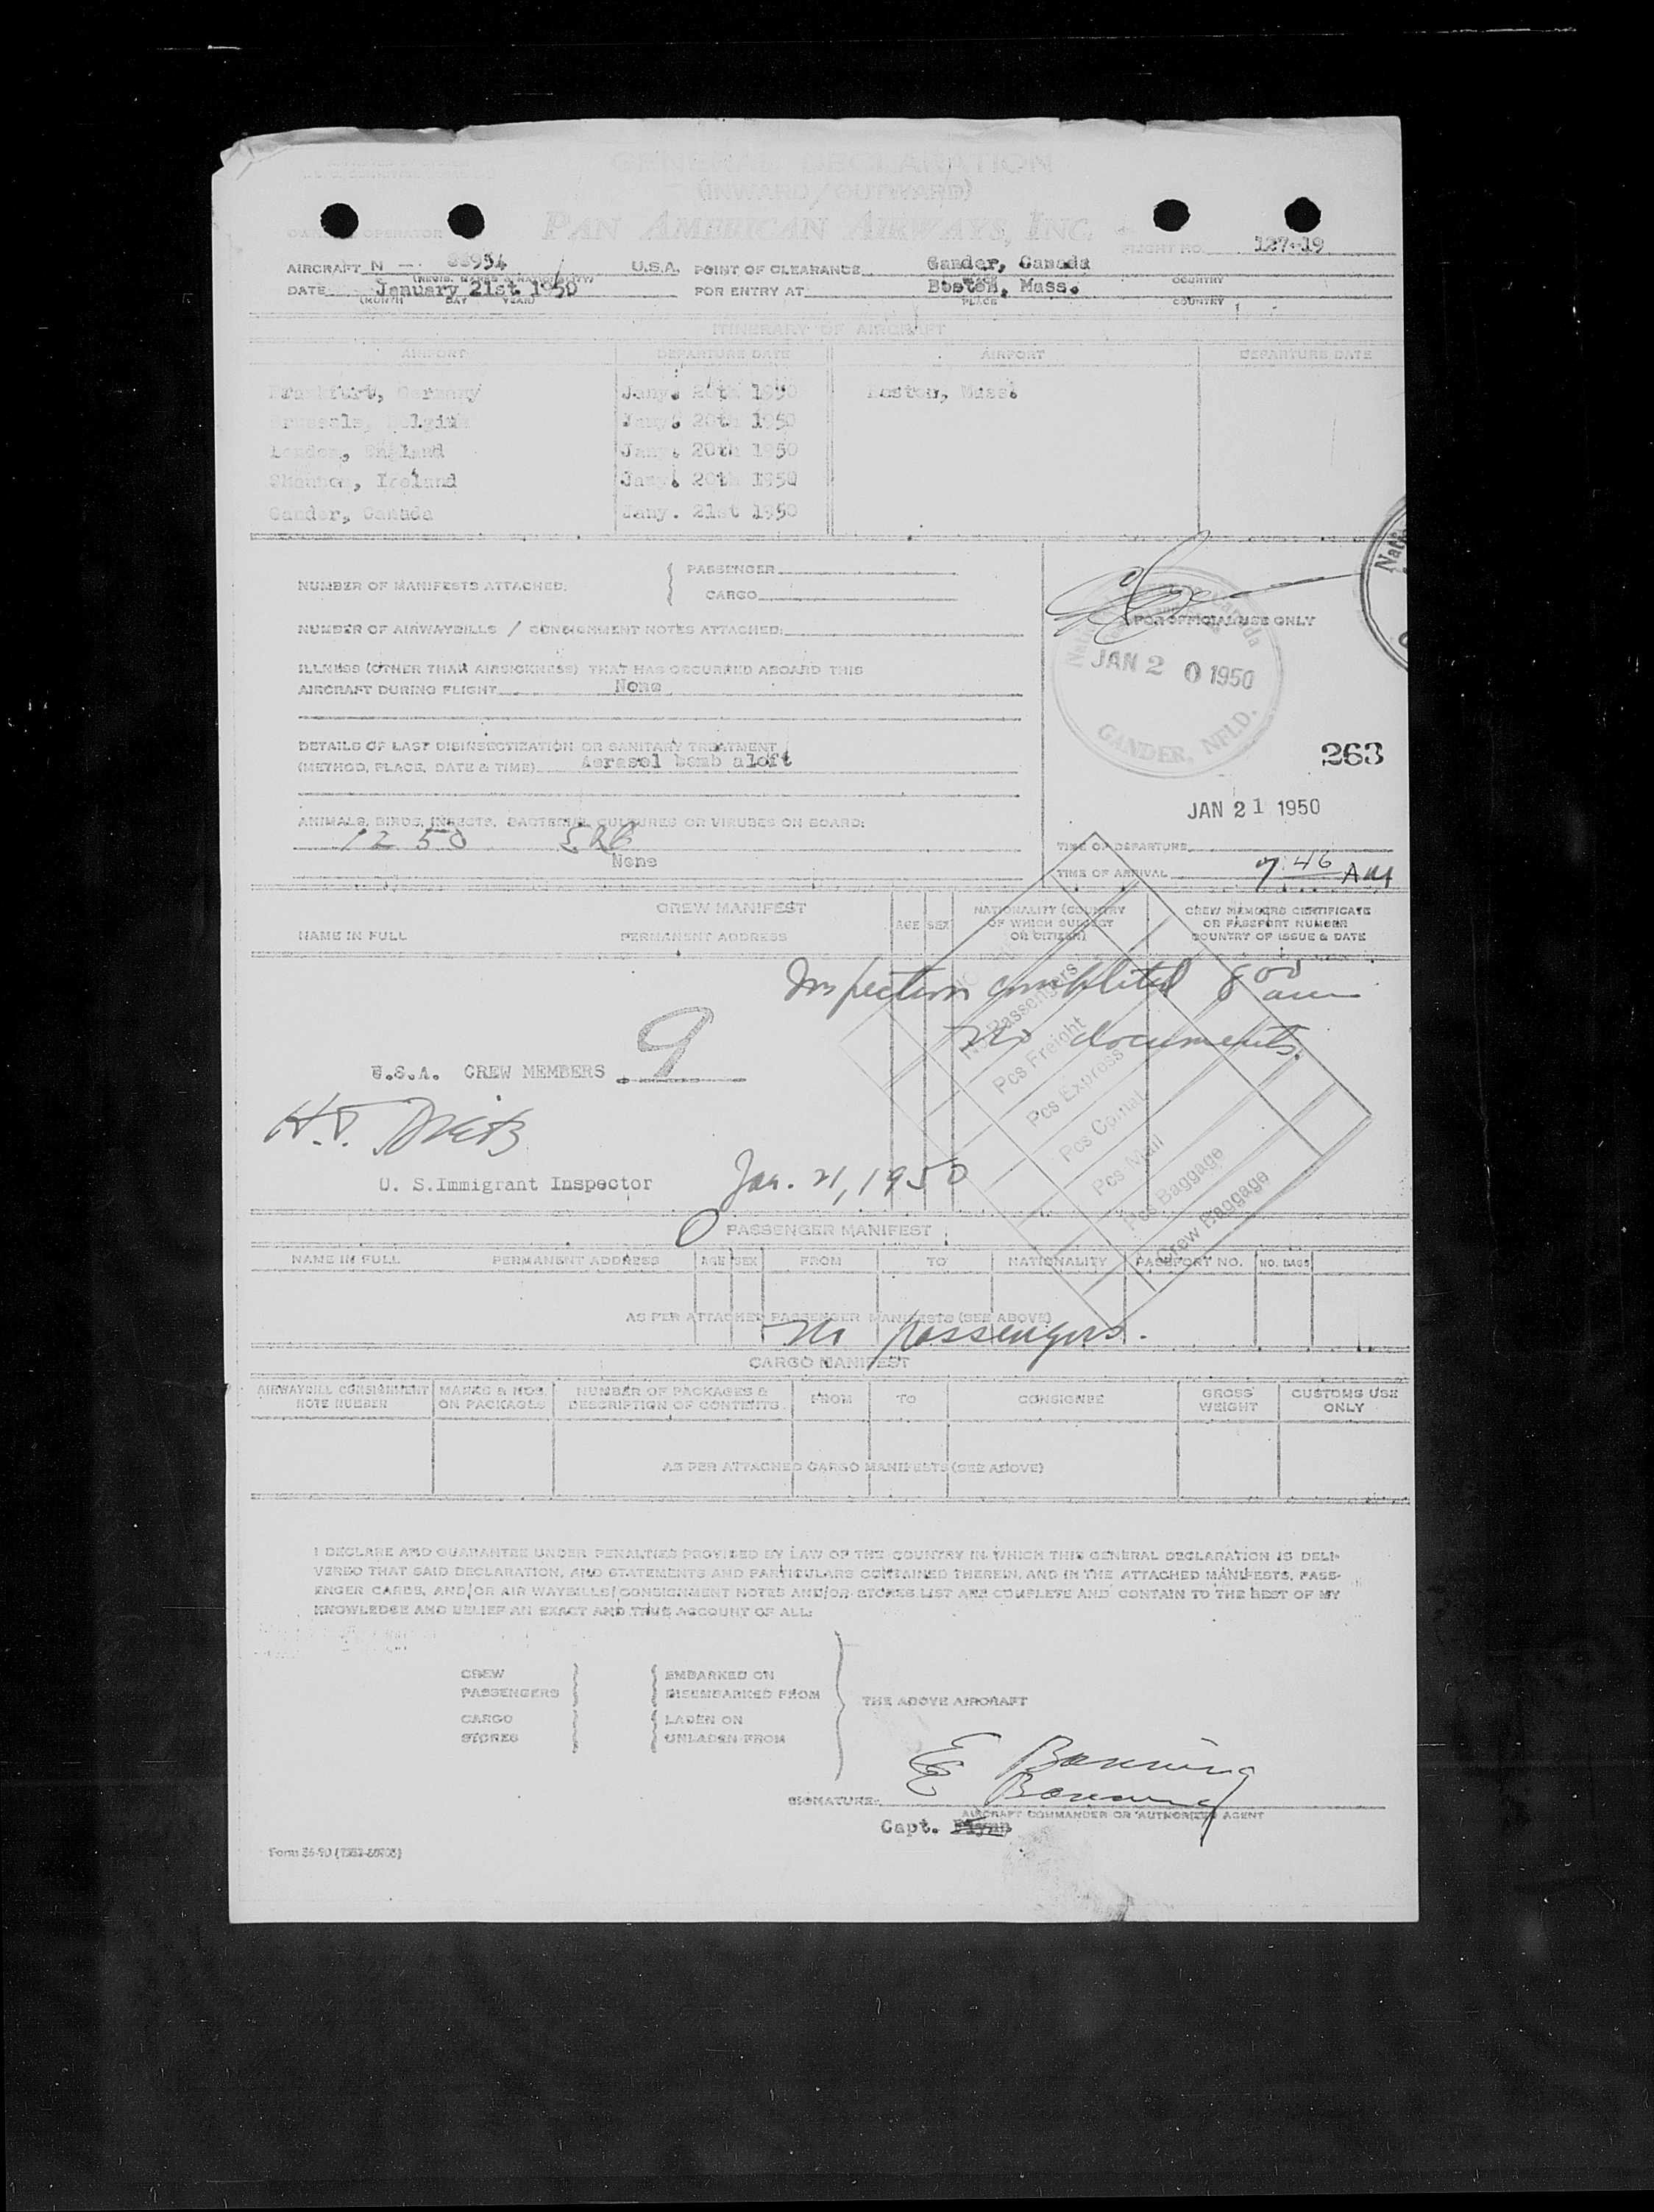 GENERAL DECLARATION
(INWARD/OUTWARD)
PAN AMERICAN AIRWAYS, INC.
OPERATOR
FLIGHT NO. 127-19
AIRCRAFT N - 88954 U.S.A. POINT OF CLEARANCE Gander, Canada
(REGIS. MARKS & NATIONALITY) COUNTRY
DATE January 21st 1950 FOR ENTRY AT Boston, Mass.
(MONTH DAY YEAR) PLACE COUNTRY
ITINERARY OF AIRCRAFT
AIRPORT DEPARTURE DATE AIRPORT DEPARTURE DATE
Frankfurt, Germany Jany. 20th 1950 Boston, Mass.
Brussels, Belgium Jany. 20th 1950
London, England Jany. 20th 1950
Shannon, Ireland Jany. 20th 1950
Gander, Canada Jany. 21st 1950
NUMBER OF MANIFESTS ATTACHED: PASSENGER
CARGO
NUMBER OF AIRWAYBILLS / CONSIGNMENT NOTES ATTACHED:
FOR OFFICIAL USE ONLY
Canada
JAN 20 1950
GANDER, NFLD.
ILLNESS (OTHER THAN AIRSICKNESS) THAT HAS OCCURRED ABOARD THIS
AIRCRAFT DURING FLIGHT None
DETAILS OF LAST DISINSECTIZATION OR SANITARY TREATMENT
(METHOD, PLACE, DATE & TIME) Aerasol bomb aloft
263
JAN 21 1950
ANIMALS, BIRDS, INSECTS, BACTERIAL CULTURES OR VIRUSES ON BOARD:
1250
None
TIME OF DEPARTURE
TIME OF ARRIVAL 7:46 AM
CREW MANIFEST
NAME IN FULL PERMANENT ADDRESS AGE SEX NATIONALITY (COUNTRY OF WHICH SUBJECT OR CITIZEN) CREW MEMBERS CERTIFICATE OR PASSPORT NUMBER COUNTRY OF ISSUE & DATE
Inspection completed 8 00 am
No documents.
No Passengers
Pcs Freight
Pcs Express
Pcs Comat
Pcs Mail
Pcs Baggage
Crew Baggage
U.S.A. CREW MEMBERS 9
H.T. Dietz
U. S. Immigrant Inspector Jan. 21, 1950
0 PASSENGER MANIFEST
NAME IN FULL PERMANENT ADDRESS AGE SEX FROM TO NATIONALITY PASSPORT NO. NO. BAGS
AS PER ATTACHED PASSENGER MANIFESTS (SEE ABOVE)
No passengers.
CARGO MANIFEST
AIRWAYBILL CONSIGNMENT NOTE NUMBER MARKS & NOS. ON PACKAGES NUMBER OF PACKAGES & DESCRIPTION OF CONTENTS FROM TO CONSIGNEE GROSS WEIGHT CUSTOMS USE ONLY
AS PER ATTACHED CARGO MANIFESTS (SEE ABOVE)
I DECLARE AND GUARANTEE UNDER PENALTIES PROVIDED BY LAW OF THE COUNTRY IN WHICH THIS GENERAL DECLARATION IS DELI-
VERED THAT SAID DECLARATION, AND STATEMENTS AND PARTICULARS CONTAINED THEREIN, AND IN THE ATTACHED MANIFESTS, PASS-
ENGER CARDS, AND/OR AIR WAYBILLS/CONSIGNMENT NOTES AND/OR STORES LIST ARE COMPLETE AND CONTAIN TO THE BEST OF MY
KNOWLEDGE AND BELIEF AN EXACT AND TRUE ACCOUNT OF ALL:
CREW EMBARKED ON
PASSENGERS DISEMBARKED FROM
THE ABOVE AIRCRAFT
CARGO LADEN ON
STORES UNLADEN FROM
E Banning
E Banning
SIGNATURE:
AIRCRAFT COMMANDER OR AUTHORIZED AGENT
Capt. Flynn